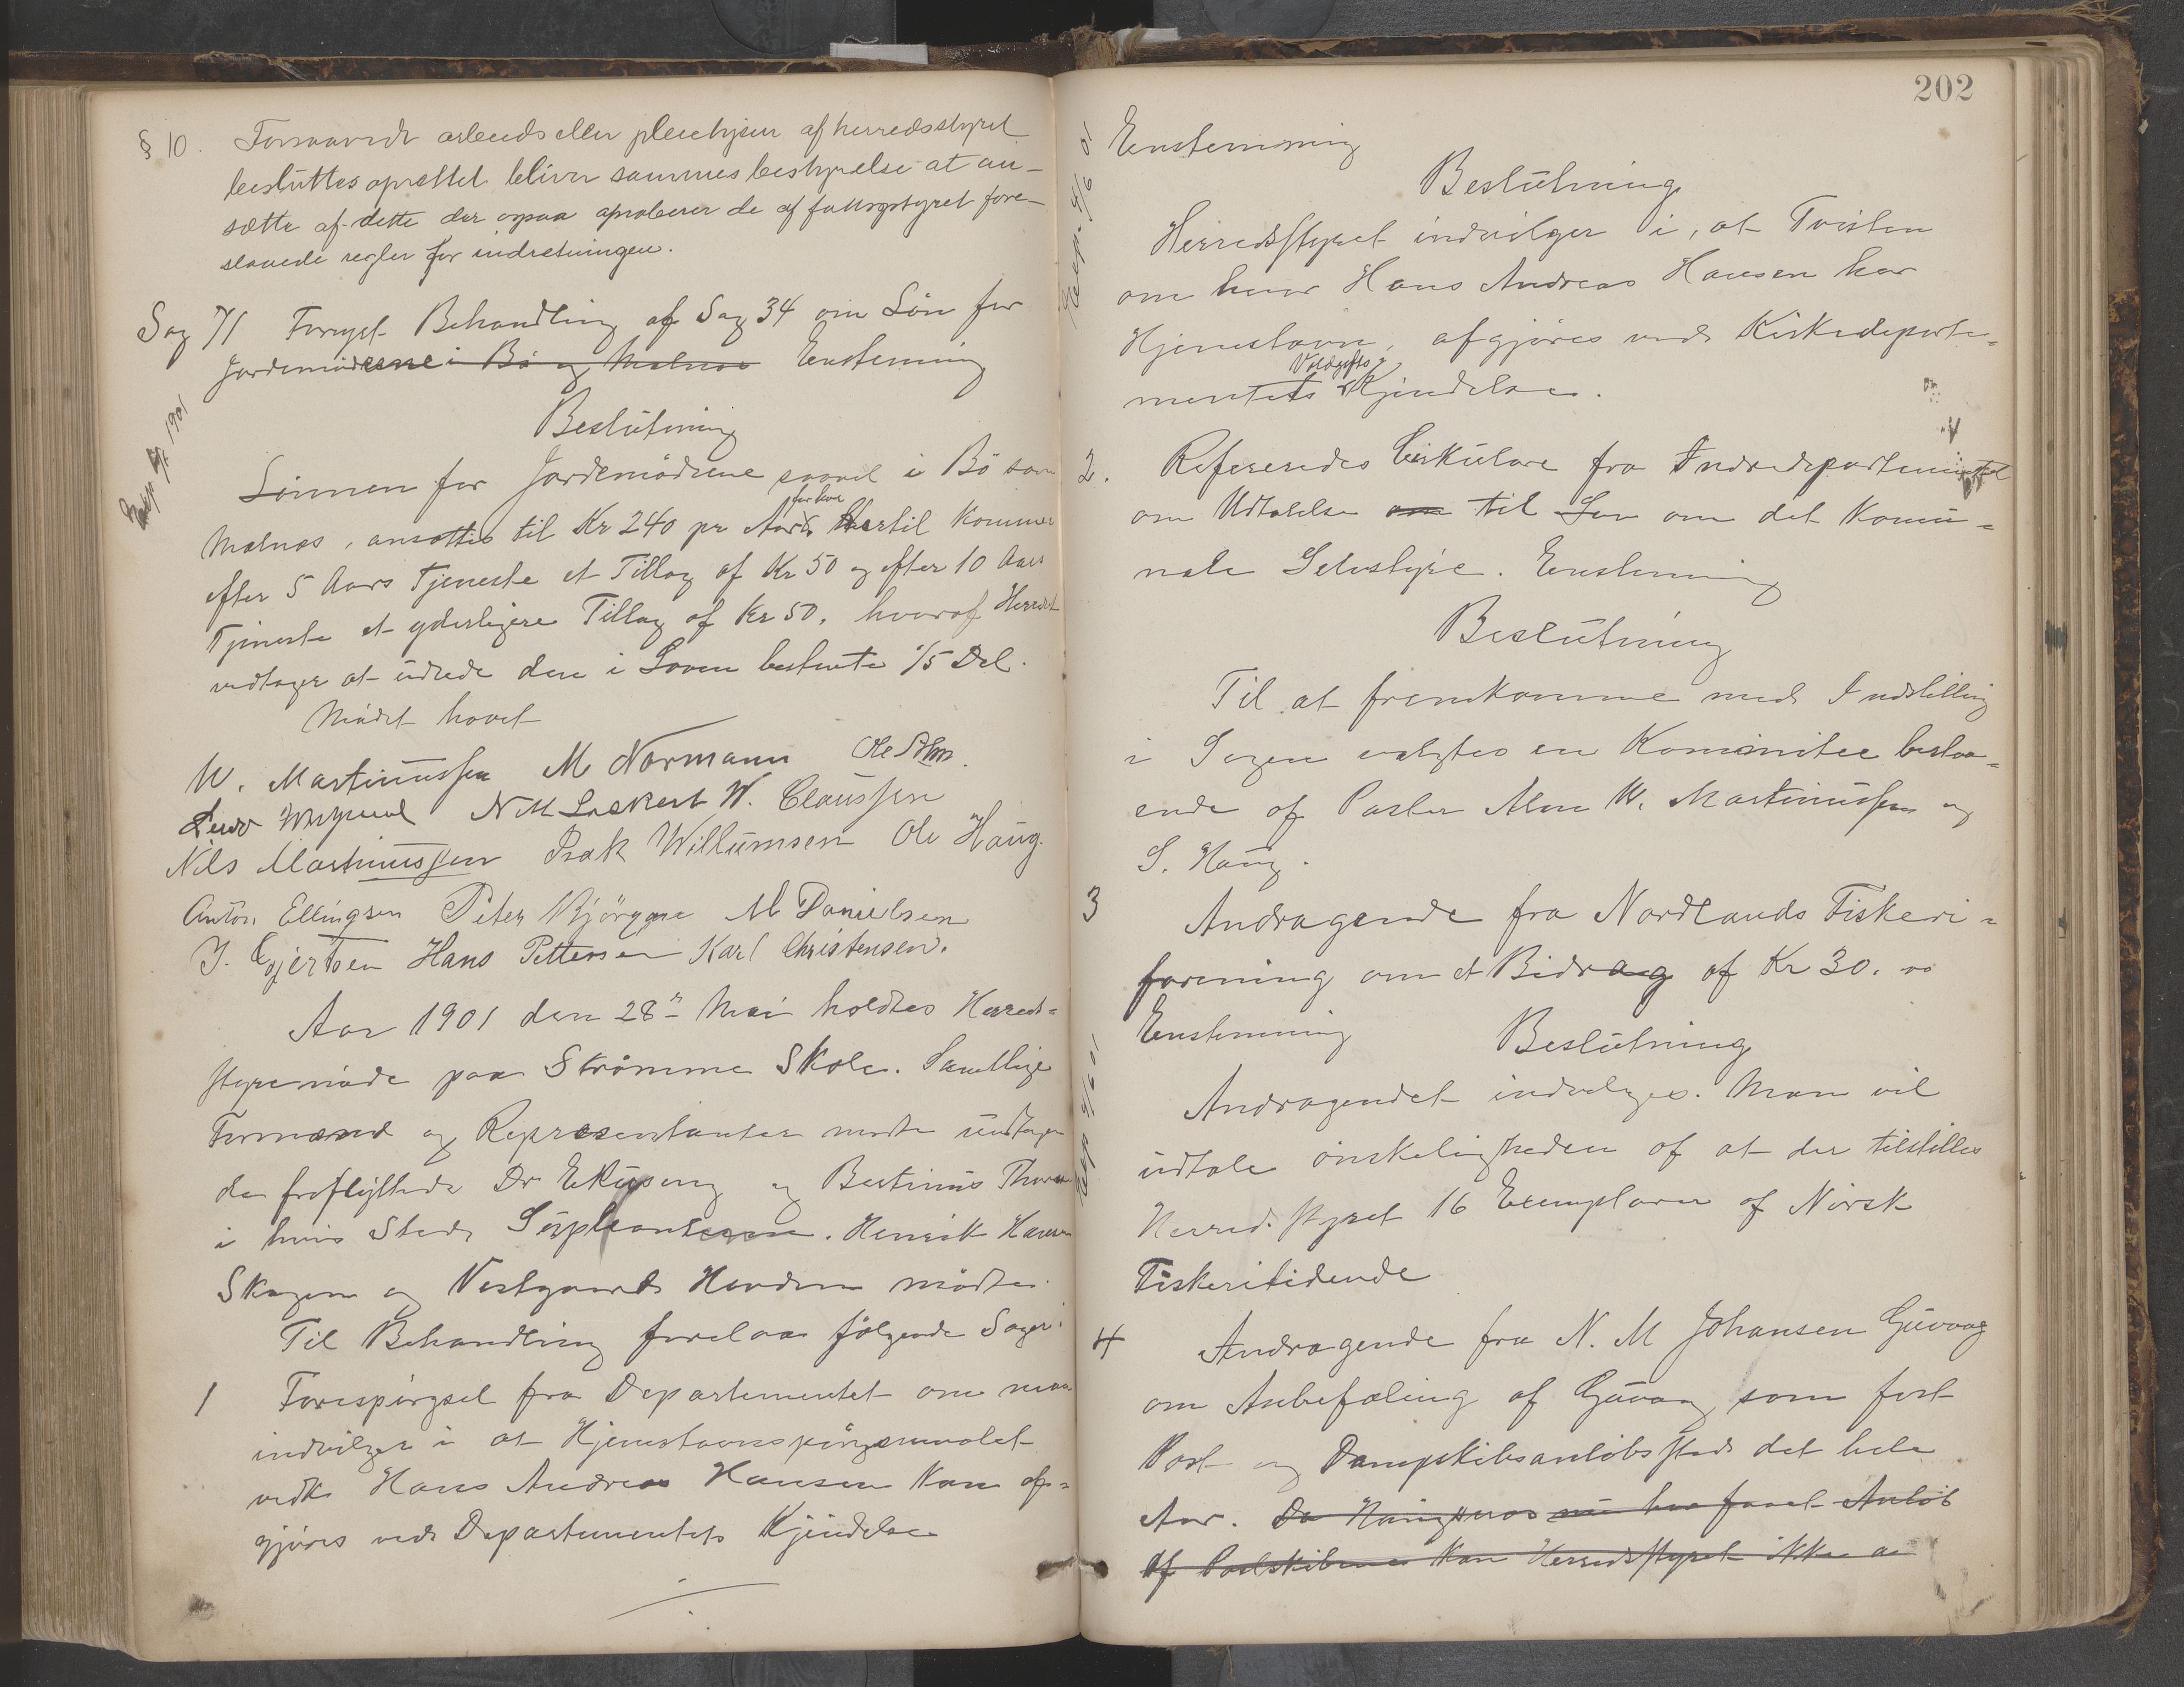 § 10. Forsaavidt arbeids eller pleiehjem af herredsstyret
besluttes oprettet bliver sammes bestyrelse at an-
sætte af dette der ogsaa aproberer de af fattigstyret fore-
slaaede regler for indretningen.
Sag 71 Fornyet Behandling af Sag 34 om Løn for
Jordemødrene i Bö og Malnes Enstemmig
Exp 1901
Beslutning
Lønnen for Jordemödrene saavel i Bö som
Malnes, ansættes til Kr 240 pr Aar for hver hertil kommer
efter 5 Aars Tjeneste et Tillæg af Kr 50 og efter 10 Aars
Tjeneste et yderligere Tillæg af Kr 50, hvoraf Herredet
vedtager at udrede den i Loven bestemte 1/5 Del.
Mödet hævet
W. Martinussen M Normann Ole
N M Lockert W. Claussen
Nils Martinussen Isak Willumsen Ole Haug.
Anton Ellingsen Peter Bjørgaae M Danielsen
J. Gjertsen Hans Pettersen Karl Christensen.
Aar 1901 den 28de Mai holdtes Herreds-
styremöde paa Strömme Skole. Samtlige
Formænd og Repræsentanter mødte undtagen
de fraflyttede Dr Ekuseng og Bertinius
i hvis Sted Suppleanterne. Henrik Hansen
Skagen og Vestgaard Hovden mödte
Til Behandling forelaa fölgende Sager:
1 Forespörgsel fra Departementet om man
indvilger i at Hjemstavnsspörgsmaalet
vedk Hans Andreas Hansen kan af-
gjöres ved Departementets Kjendelse
202
Enstemmig
Exp. 5/6 01
Beslutning
Herredsstyret indvilger i, at Tvisten
om hvor Hans Andreas Hansen har
Hjemstavn, afgjöres ved Kirkedeparte-
mentets Voldgifts Kjendelse.
2. Refereredes Cirkulære fra Indredepartementet
om Udtalelse om til Lov om det Komu-
nale Selvstyre. Enstemmig
Beslutning
Til at fremkomme med Indstilling
i Sagen valgtes en Kommitee bestaa-
ende af Pastor Alme W. Martinussen og
S. Haug.
3 Andragende fra Nordlands Fiskeri-
forening om et Bidrag af Kr 30. oo
Enstemmig Beslutning
Exp 5/6 01
Andragendet indvilges. Man vil
udtale önskeligheden af at der tilstilles
Herredsstyret 16 Exemplarer af Norsk
Fiskeritidende
4 Andragende fra N. M Johansen Guvaag
om Anbefaling af Guvaag som fast
Post og Dampskibsanlöbssted det hele
Aar. Da Haugsnes nu har faaet Anlöb
af Postskibene kan Herredsstyret ikke an